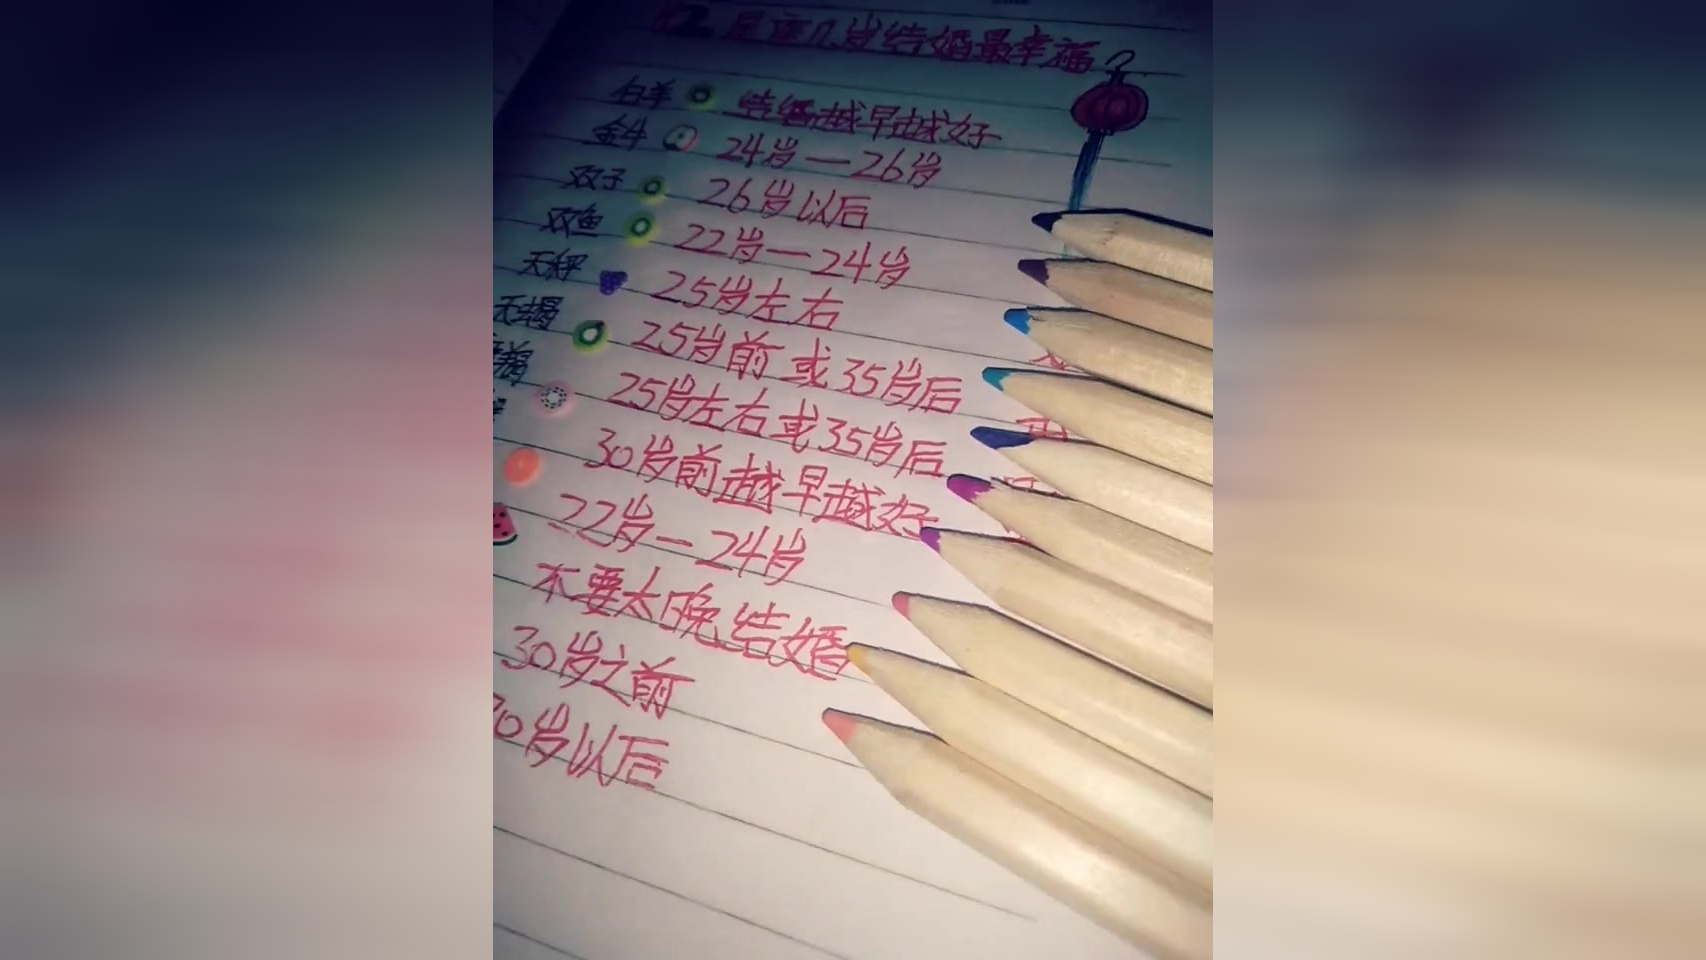 12星座几岁结婚最幸福?
白羊 结婚越早越好
金牛 24岁—26岁
双子 26岁以后
双鱼 22岁—24岁
天秤 25岁左右
天蝎 25岁前或35岁后
瓶 25岁左右或35岁后
30岁前越早越好
22岁—24岁
不要太晚结婚
30岁之前
30岁以后